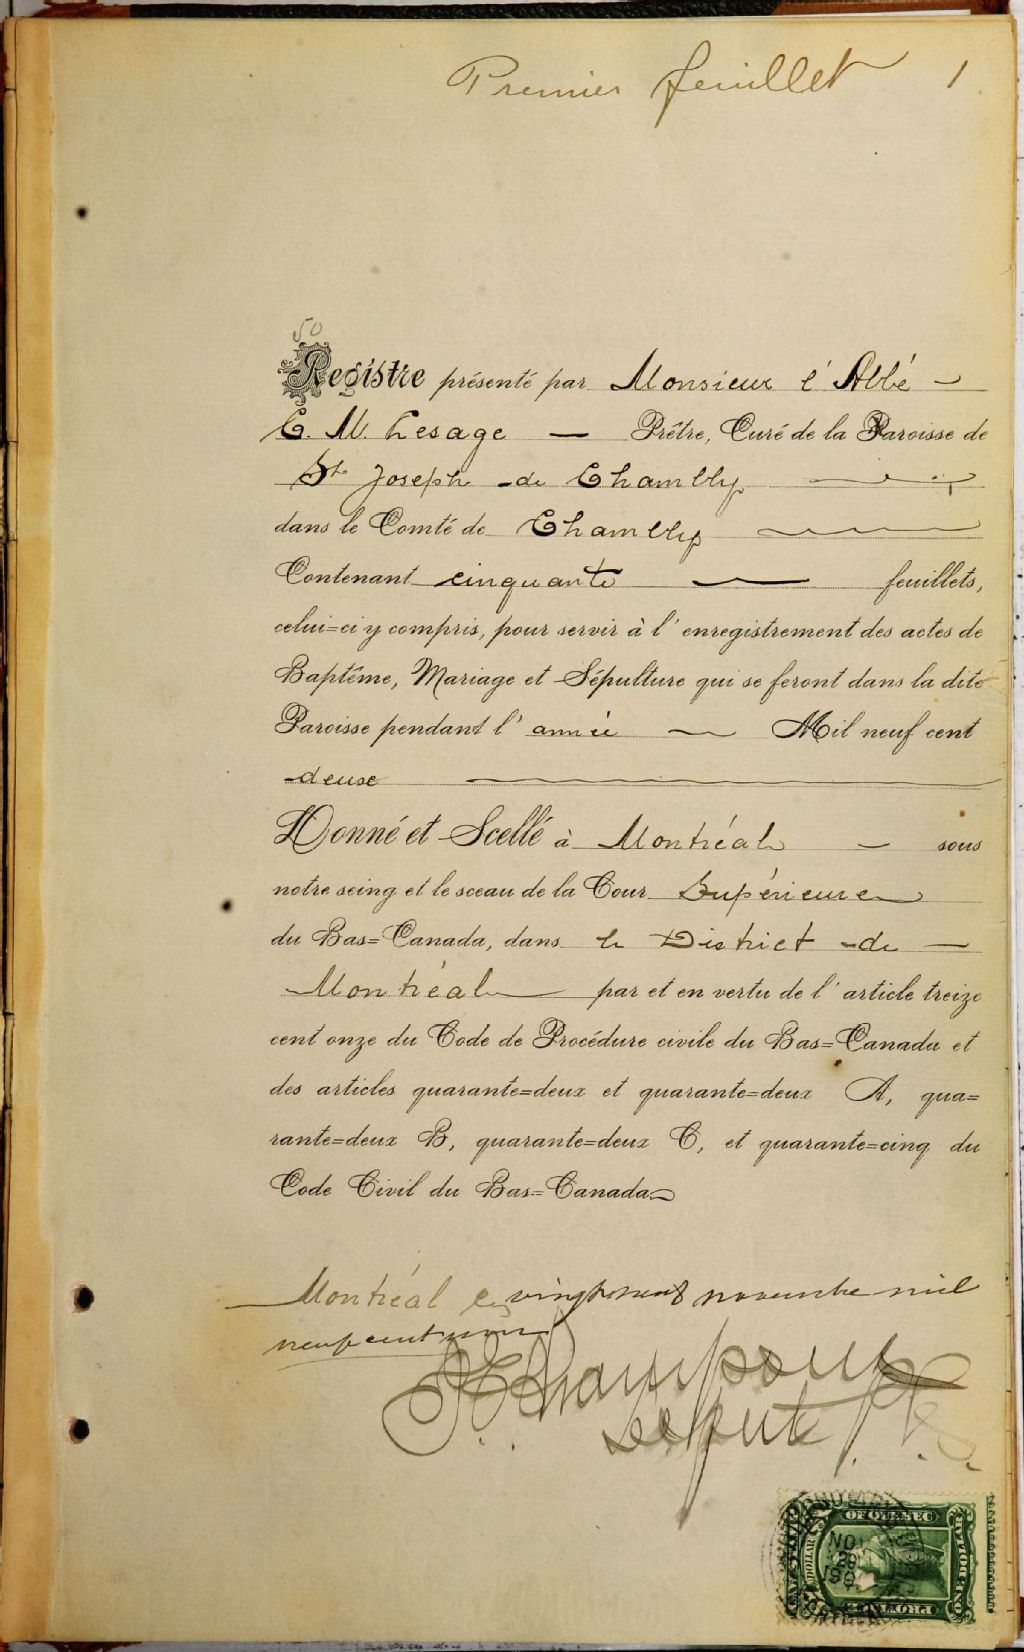 Premier feuillet 1
50
Registre présenté par Monsieur l'Abbé
E. M. Lesage Prêtre, Curé de la Paroisse de
St Joseph de Chambly
dans le Comté de Chambly
Contenant cinquante feuillets,
celui=ci y compris, pour servir à l'enregistrement des actes de
Baptême, Mariage et Sépulture qui se feront dans la dite
Paroisse pendant l'année Mil neuf cent
deuse
Donné et Scellé à Montréal sous
notre seing et le sceau de la Cour Supérieure
du Bas=Canada, dans le District de
Montréal par et en vertu de l'article treize
cent onze du Code de Procédure civile du Bas=Canada et
des articles quarante=deux et quarante=deux A, qua=
rante=deux B, quarante=deux C, et quarante=cinq du
Code Civil du Bas=Canada
Montréal ce vingt neuf novembre mil
neuf cent un
Champoux
Député P.
OF QUEBEC
DOLLAR
NOV
PROVINCE